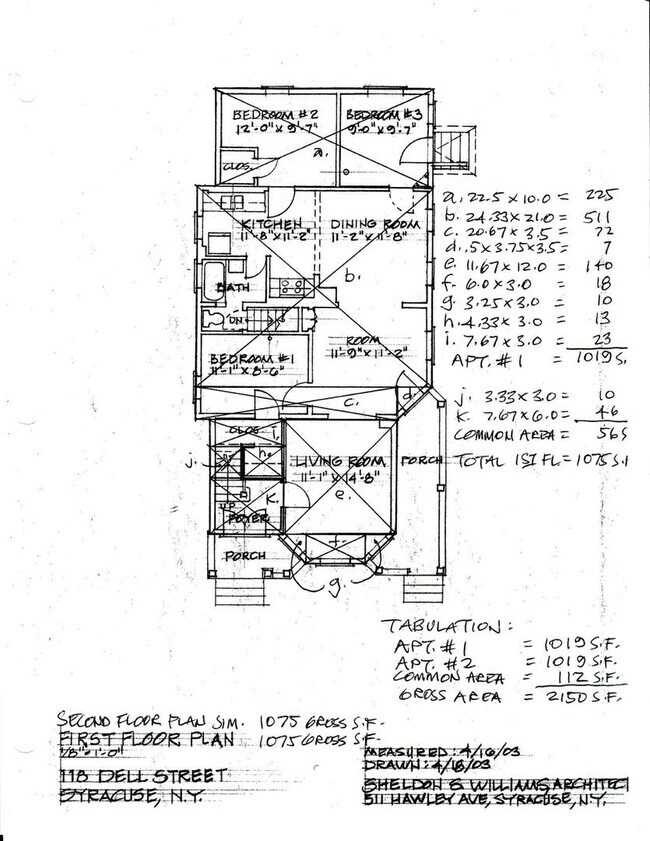 BEDROOM #2
12'-0"x9'-7"
BEDROOM #3
9'-0"x9'-7"
a.
CLOS.
KITCHEN
11'-8"x11'-2"
DINING ROOM
11'-2"x11'-8"
b.
BATH
DN
ROOM
11'-9"x11'-2"
BEDROOM #1
11'-1"x8'-6"
c.
d.
CLOS.
i.
j.
h.
LIVING ROOM
11'-1"x14'-8"
e.
PORCH
k.
UP
FOYER
PORCH
g.
a. 22.5 x 10.0 = 225
b. 24.33 x 21.0 = 511
c. 20.67 x 3.5 = 72
d. .5 x 3.75 x 3.5 = 7
e. 11.67 x 12.0 = 140
f. 6.0 x 3.0 = 18
g. 3.25 x 3.0 = 10
h. 4.33 x 3.0 = 13
i. 7.67 x 3.0 = 23
APT. #1 = 1019 S.
j. 3.33 x 3.0 = 10
k. 7.67 x 6.0 = 46
COMMON AREA = 56 S
TOTAL 1ST FL. = 1075 S.
TABULATION:
APT. #1 = 1019 S.F.
APT. #2 = 1019 S.F.
COMMON AREA = 112 S.F.
GROSS AREA = 2150 S.F.
SECOND FLOOR PLAN SIM. 1075 GROSS S.F.
FIRST FLOOR PLAN 1075 GROSS S.F.
1/8"=1'-0"
118 DELL STREET
SYRACUSE, N.Y.
MEASURED: 4/16/03
DRAWN: 4/18/03
SHELDON S WILLIAMS, ARCHITECT
511 HAWLEY AVE, SYRACUSE, N.Y.